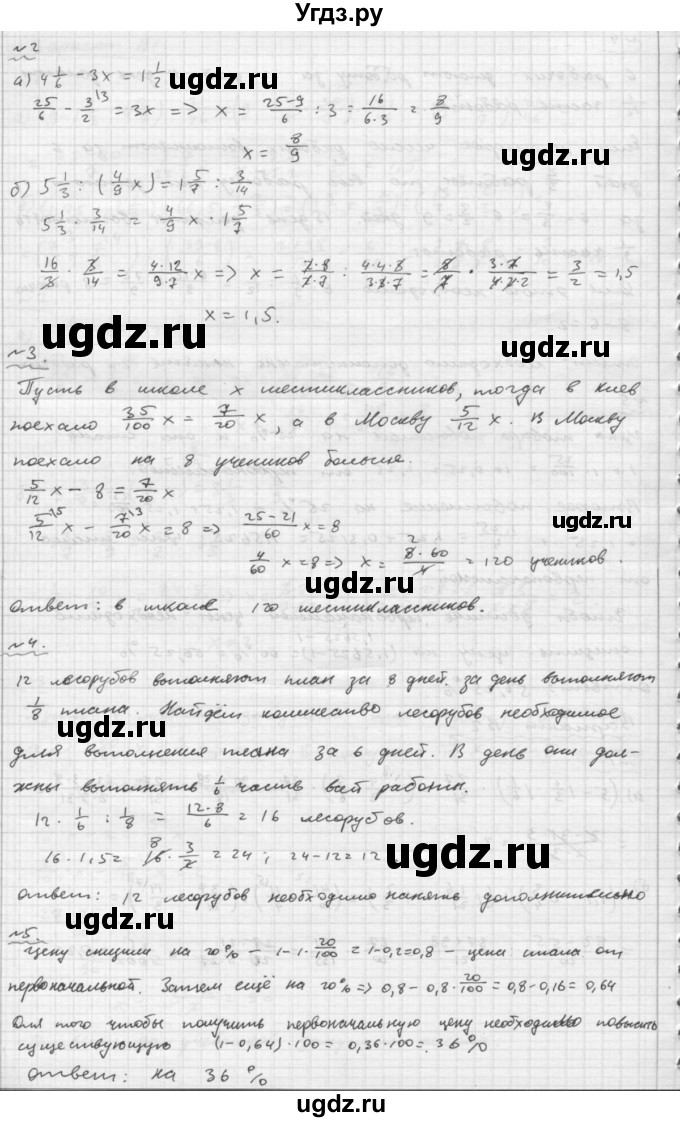 Угдз.ру
№2
а) 4 1/6 - 3x = 1 1/2
25/6 - 3/2 \3 = 3x => x = (25-9)/6 : 3 = 16/(6·3) = 8/9
x = 8/9
б) 5 1/3 : (4/9 x) = 1 5/7 : 3/14
5 1/3 · 3/14 = 4/9 x · 1 5/7
16/3 · 3/14 = (4·12)/(9·7) x => x = (2·8)/(2·7) : (4·4·3)/(3·3·7) = 8/7 · (3·7)/(4·2·2) = 3/2 = 1,5
x = 1,5.
№3.
Пусть в школе x шестиклассников, тогда в Киев
поехало 35/100 x = 7/20 x, а в Москву 5/12 x. В Москву
поехало на 8 учеников больше.
5/12 x - 8 = 7/20 x
5/12 \5 x - 7/20 \3 x = 8 => (25-21)/60 x = 8
4/60 x = 8 => x = (8·60)/4 = 120 учеников.
ответ: в школе 120 шестиклассников.
№4.
12 лесорубов выполняют план за 8 дней. за день выполняют
1/8 плана. Найдём количество лесорубов необходимое
для выполнения плана за 6 дней. В день они дол-
жны выполнять 1/6 часть всей работы.
12 · 1/6 : 1/8 = (12·8)/6 = 16 лесорубов.
16 · 1,5 = 16 · 3/2 = 24 ; 24-12=12
ответ: 12 лесорубов необходимо нанять дополнительно
№5
Цену снизили на 20% - 1-1·20/100 = 1-0,2=0,8 - цена стала от
первоначальной. Затем ещё на 20% => 0,8 - 0,8·20/100 = 0,8-0,16 = 0,64
Для того чтобы получить первоначальную цену необходимо повысить
существующую (1-0,64)·100 = 0,36·100 = 36%
ответ: на 36%
ugdz.ru
ugdz.ru
ugdz.ru
ugdz.ru
ugdz.ru
ugdz.ru
ugdz.ru
ugdz.ru
ugdz.ru
ugdz.ru